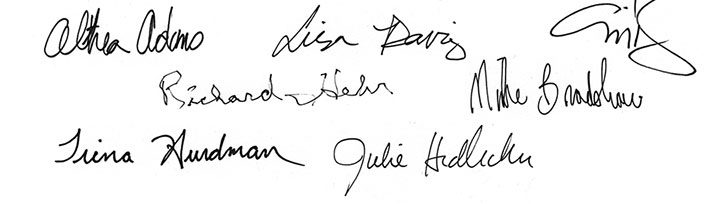 Althea Adams Lisa Davis
Richard Hehr Mike Bradshaw
Trina Hurdman Julie Hrdlicka